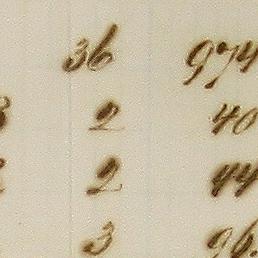 36 974
3 2 40
2 44
3 96